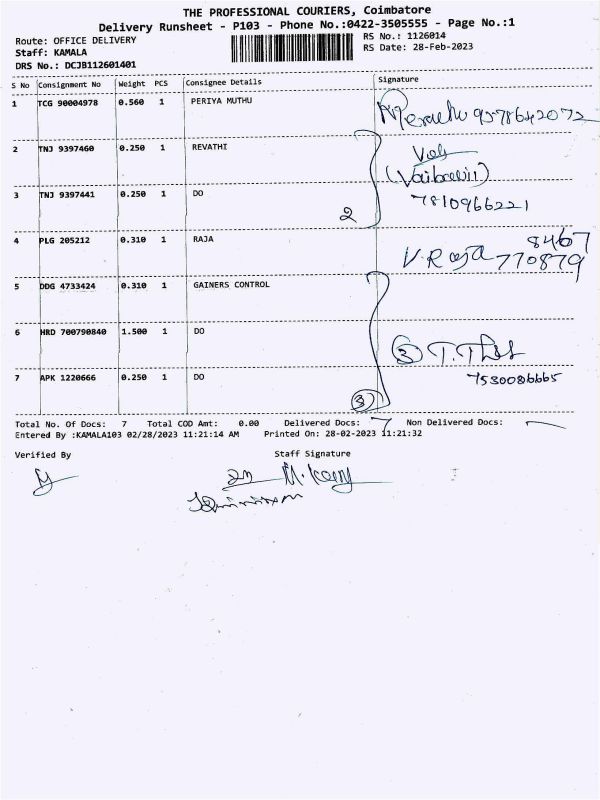 THE PROFESSIONAL COURIERS, Coimbatore
Delivery Runsheet - P103 - Phone No.:0422-3505555 - Page No.:1
Route: OFFICE DELIVERY
Staff: KAMALA
DRS No.: DCJB112601401
RS No.: 1126014
RS Date: 28-Feb-2023
S No Consignment No Weight PCS Consignee Details Signature
1 TCG 90004978 0.560 1 PERIYA MUTHU 9578642072
2 TNJ 9397460 0.250 1 REVATHI
3 TNJ 9397441 0.250 1 DO 7810966221
2
4 PLG 205212 0.310 1 RAJA V. Raja 8467
770879
5 DDG 4733424 0.310 1 GAINERS CONTROL
6 HRD 700790840 1.500 1 DO 3
7530086665
7 APK 1220666 0.250 1 DO
3
Total No. Of Docs: 7 Total COD Amt: 0.00 Delivered Docs: 7 Non Delivered Docs:
Entered By :KAMALA103 02/28/2023 11:21:14 AM Printed On: 28-02-2023 11:21:32
Verified By Staff Signature